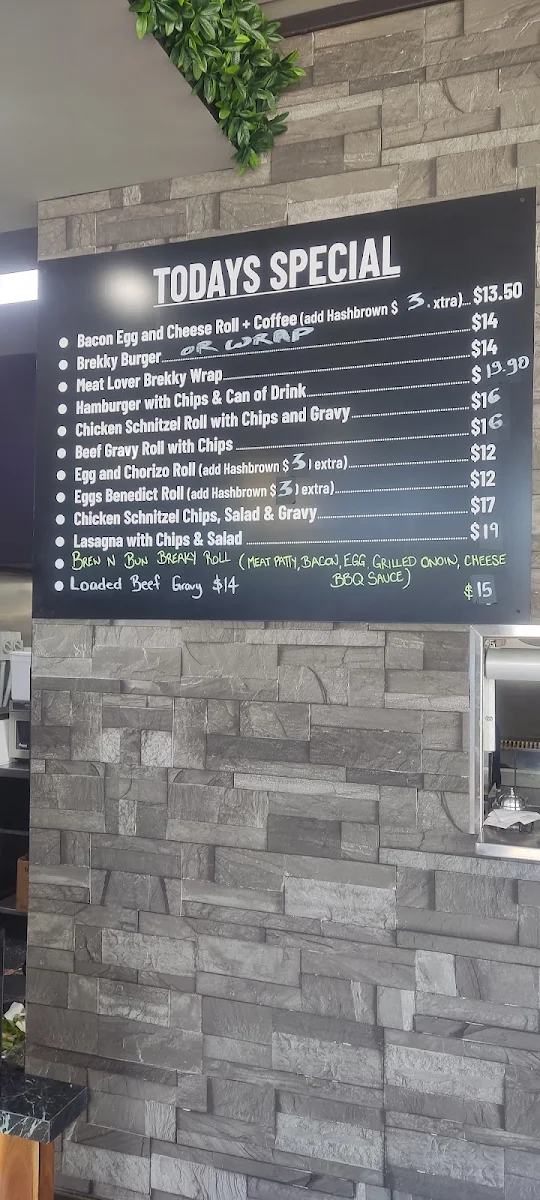 TODAYS SPECIAL
Bacon Egg and Cheese Roll + Coffee (add Hashbrown $ 3. xtra)... $13.50
Brekky Burger OR WRAP $14
Meat Lover Brekky Wrap $14
Hamburger with Chips & Can of Drink $ 19.90
Chicken Schnitzel Roll with Chips and Gravy $16
Beef Gravy Roll with Chips $16
Egg and Chorizo Roll (add Hashbrown $ 3) extra) $12
Eggs Benedict Roll (add Hashbrown $ 3) extra) $12
Chicken Schnitzel Chips, Salad & Gravy $17
Lasagna with Chips & Salad $19
BREW N BUN BREAKY ROLL (MEAT PATTY, BACON, EGG, GRILLED ONOIN, CHEESE
BBQ SAUCE) $ 15
Loaded Beef Gravy $14